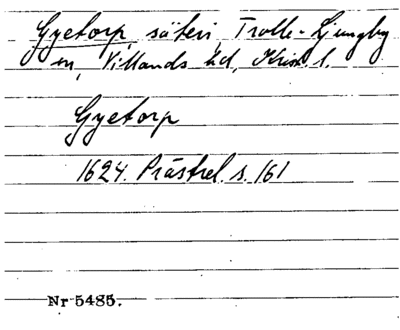 Gyetorp, säteri, Trolle-Ljungby
sn, Villands hd, Krist. l.
Gyetorp
1624. Prästrel. s. 161
Nr 5485.